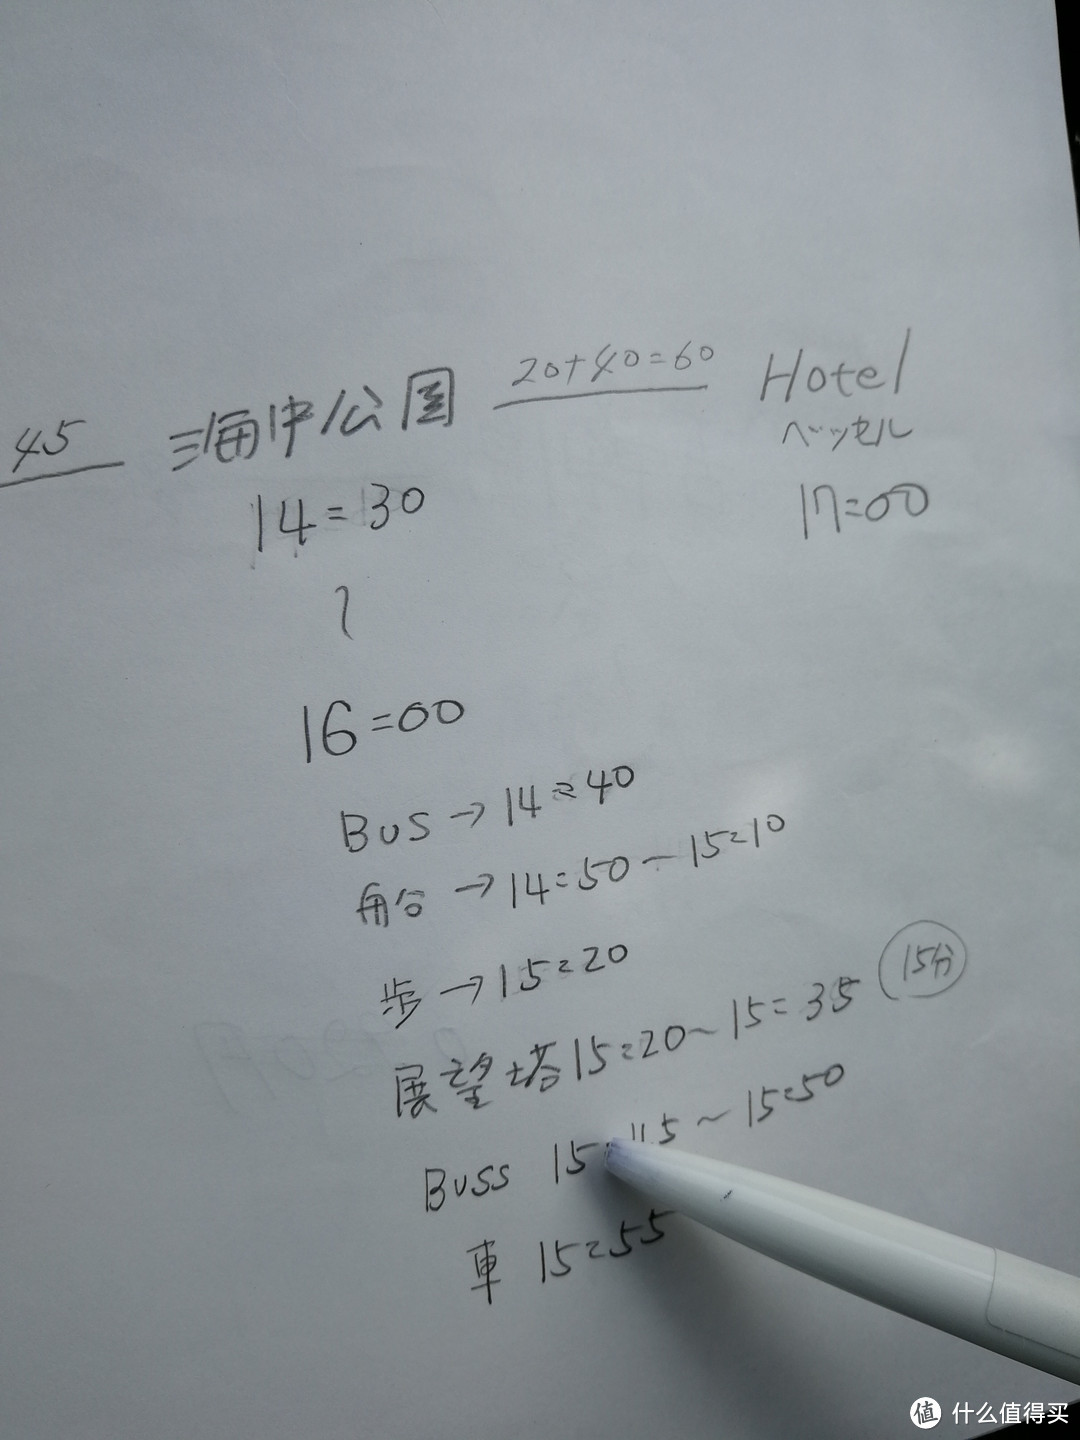 45 海中公園 20+40=60 Hotel
ベッセル
14=30 17=00
~
16=00
Bus → 14=40
船台 → 14=50 ~ 15=10
歩 → 15=20
展望塔 15=20 ~ 15=35 15分
Buss 15=45 ~ 15=50
車 15=55
值 什么值得买